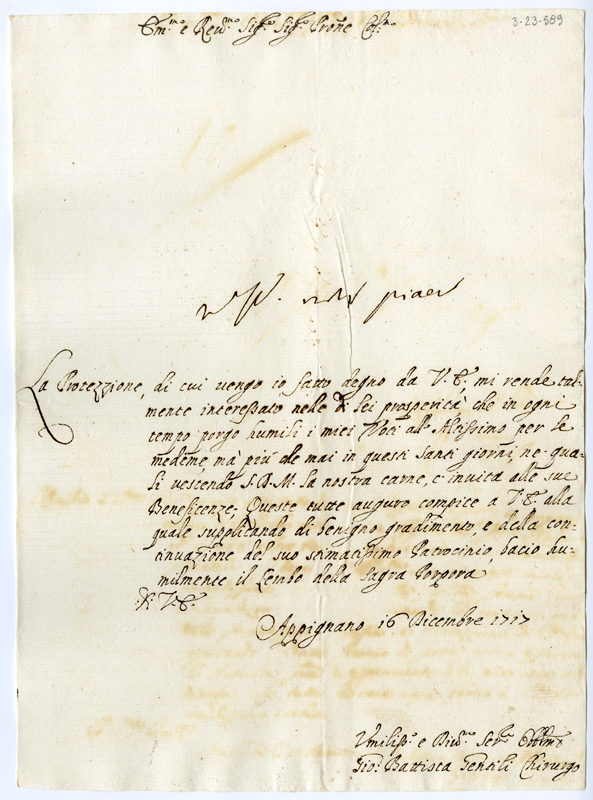 3-23-689
Em.mo e Rev.mo Sig.r Sig.r Prone Col.mo
La Protezzione, di cui vengo io fatto degno da V.E., mi rende tal-
mente interessato nelle di lei prosperità, che in ogni
tempo porgo humili i miei Voti all' Altissimo per le
medeme, ma più che mai in questi Santi giorni, ne qua-
li vestendo S.D.M. la nostra carne, c' invita alle sue
Beneficenze; Queste tutte auguro compite a V.E. alla
quale supplicando di benigno gradimento, e della con-
tinuazione del suo stimatissimo Patrocinio, bacio hu-
milmente il lembo della Sagra Porpora
Di V.E.
Appignano 16 Dicembre 1717
Umiliss.o e Div.mo Ser.re Obblmo
Gio: Battista Gentili Chirurgo